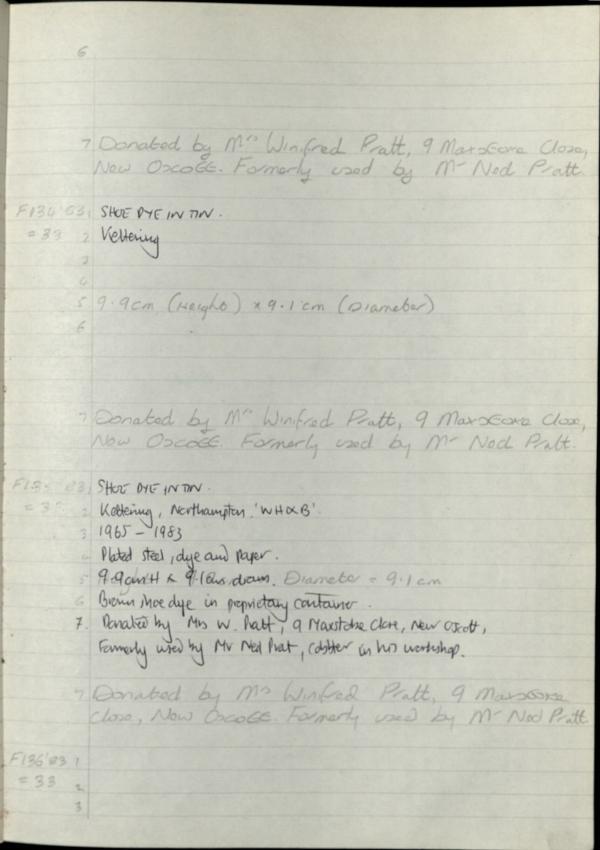 6
7 Donated by Mrs Winifred Pratt, 9 Maxstoke Close,
New Oscott. Formerly used by Mr Ned Pratt.
F134'83 1 SHOE DYE IN TIN.
= 33 2 Kettering
3
4
5 9.9cm (Height) x 9.1cm (Diameter)
6
7 Donated by Mrs Winifred Pratt, 9 Maxstoke Close,
New Oscott. Formerly used by Mr Ned Pratt.
F135'83 1 SHOE DYE IN TIN.
= 3 2 Kettering, Northampton. 'WH&B'.
3 1965 - 1983
4 Plated steel, dye and paper.
5 9.9cm H x 9.1cms diam. Diameter = 9.1cm
6 Brown shoe dye in proprietary container.
7. Donated by Mrs W. Pratt, 9 Maxstoke Close, New Oscott,
Formerly used by Mr Ned Pratt, cobbler in his workshop.
7 Donated by Mrs Winifred Pratt, 9 Maxstoke
Close, New Oscott. Formerly used by Mr Ned Pratt.
F136'83 1
= 33 2
3